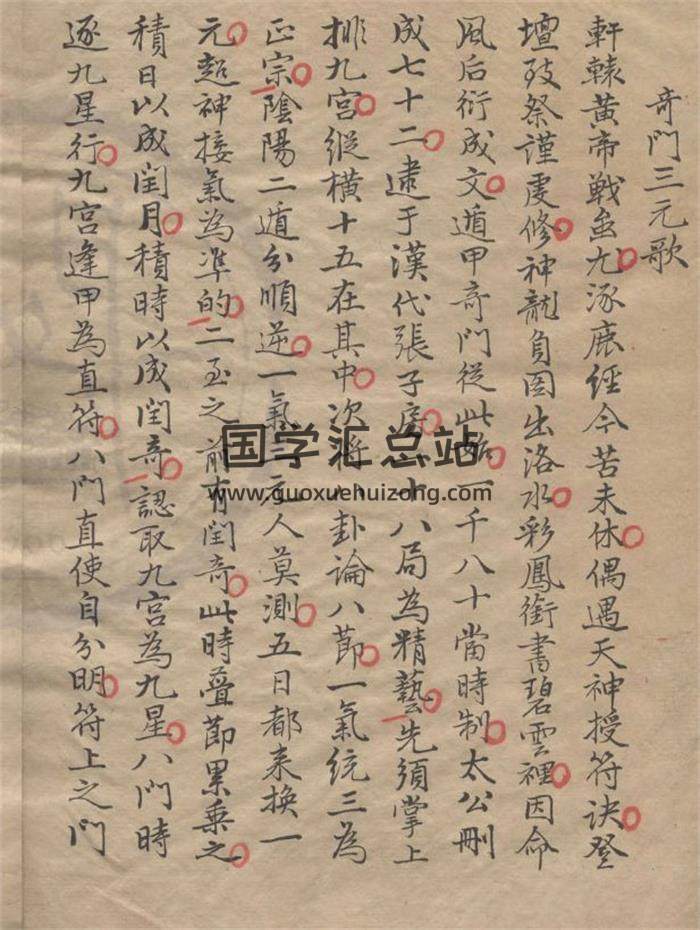 奇門三元歌
軒轅黃帝戰蚩尤涿鹿經今苦未休偶遇天神授符訣登
壇致祭謹虔修神龍負图出洛水彩鳳銜書碧雲裡因命
風后衍成文遁甲奇門從此始一千八十當時制太公刪
成七十二逮于漢代張子房一十八局為精藝先須掌上
排九宮縱横十五在其中次將八卦論八節一氣統三為
正宗陰陽二遁分順逆一氣三元人莫測五日都来換一
元超神接氣為準的二至之前有閏奇此時叠節累乘之
積日以成閏月積時以成閏奇認取九宮為九星八門時
逐九星行九宮逢甲為直符八門直使自分明符上之門
国学汇总站
www.guoxuehuizong.com